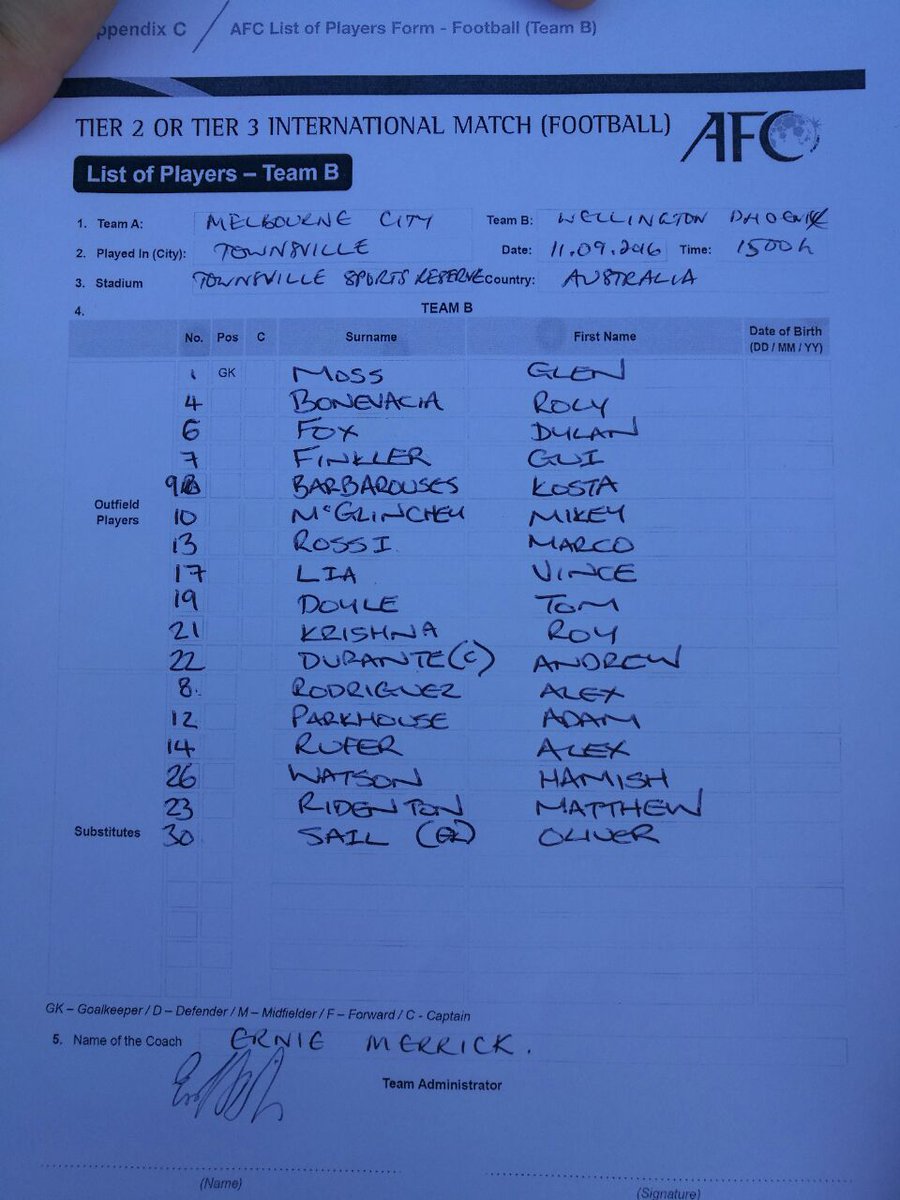 ppendix C / AFC List of Players Form - Football (Team B)
TIER 2 OR TIER 3 INTERNATIONAL MATCH (FOOTBALL) AFC
List of Players – Team B
1. Team A: MELBOURNE CITY Team B: WELLINGTON PHOENIX
2. Played In (City): TOWNSVILLE Date: 11.09.2016 Time: 1500h
3. Stadium TOWNSVILLE SPORTS RESERVE Country: AUSTRALIA
4. TEAM B
No. Pos C Surname First Name Date of Birth
(DD / MM / YY)
1 GK MOSS GLEN
4 BONEVACIA ROLY
6 FOX DYLAN
7 FINKLER GUI
9 BARBAROUSES KOSTA
Outfield
Players
10 McGLINCHEY MIKEY
13 ROSSI MARCO
17 LIA VINCE
19 DOYLE TOM
21 KRISHNA ROY
22 DURANTE (C) ANDREW
8. RODRIGUEZ ALEX
12 PARKHOUSE ADAM
14 RUFER ALEX
26 WATSON HAMISH
23 RIDENTON MATTHEW
Substitutes 30 SAIL (GK) OLIVER
GK – Goalkeeper / D – Defender / M – Midfielder / F – Forward / C - Captain
5. Name of the Coach ERNIE MERRICK.
Team Administrator
(Name) (Signature)